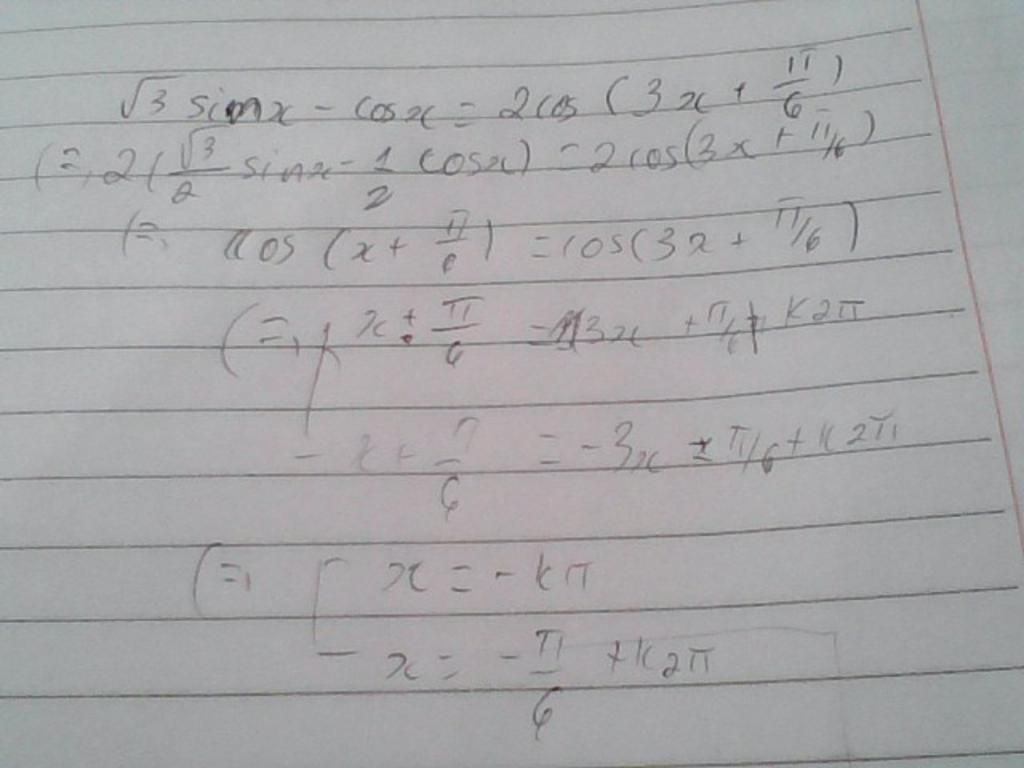 √3 sinx - cosx = 2cos (3x + π/6)
(=, 2(√3/2 sinx - 1/2 cosx) = 2cos(3x + π/6)
(=, cos (x + π/6) = cos(3x + π/6)
(=, x + π/6 = 3x + π/6 + k2π
x + π/6 = -3x - π/6 + k2π
(=, [ x = -kπ
x = -π/6 + k2π